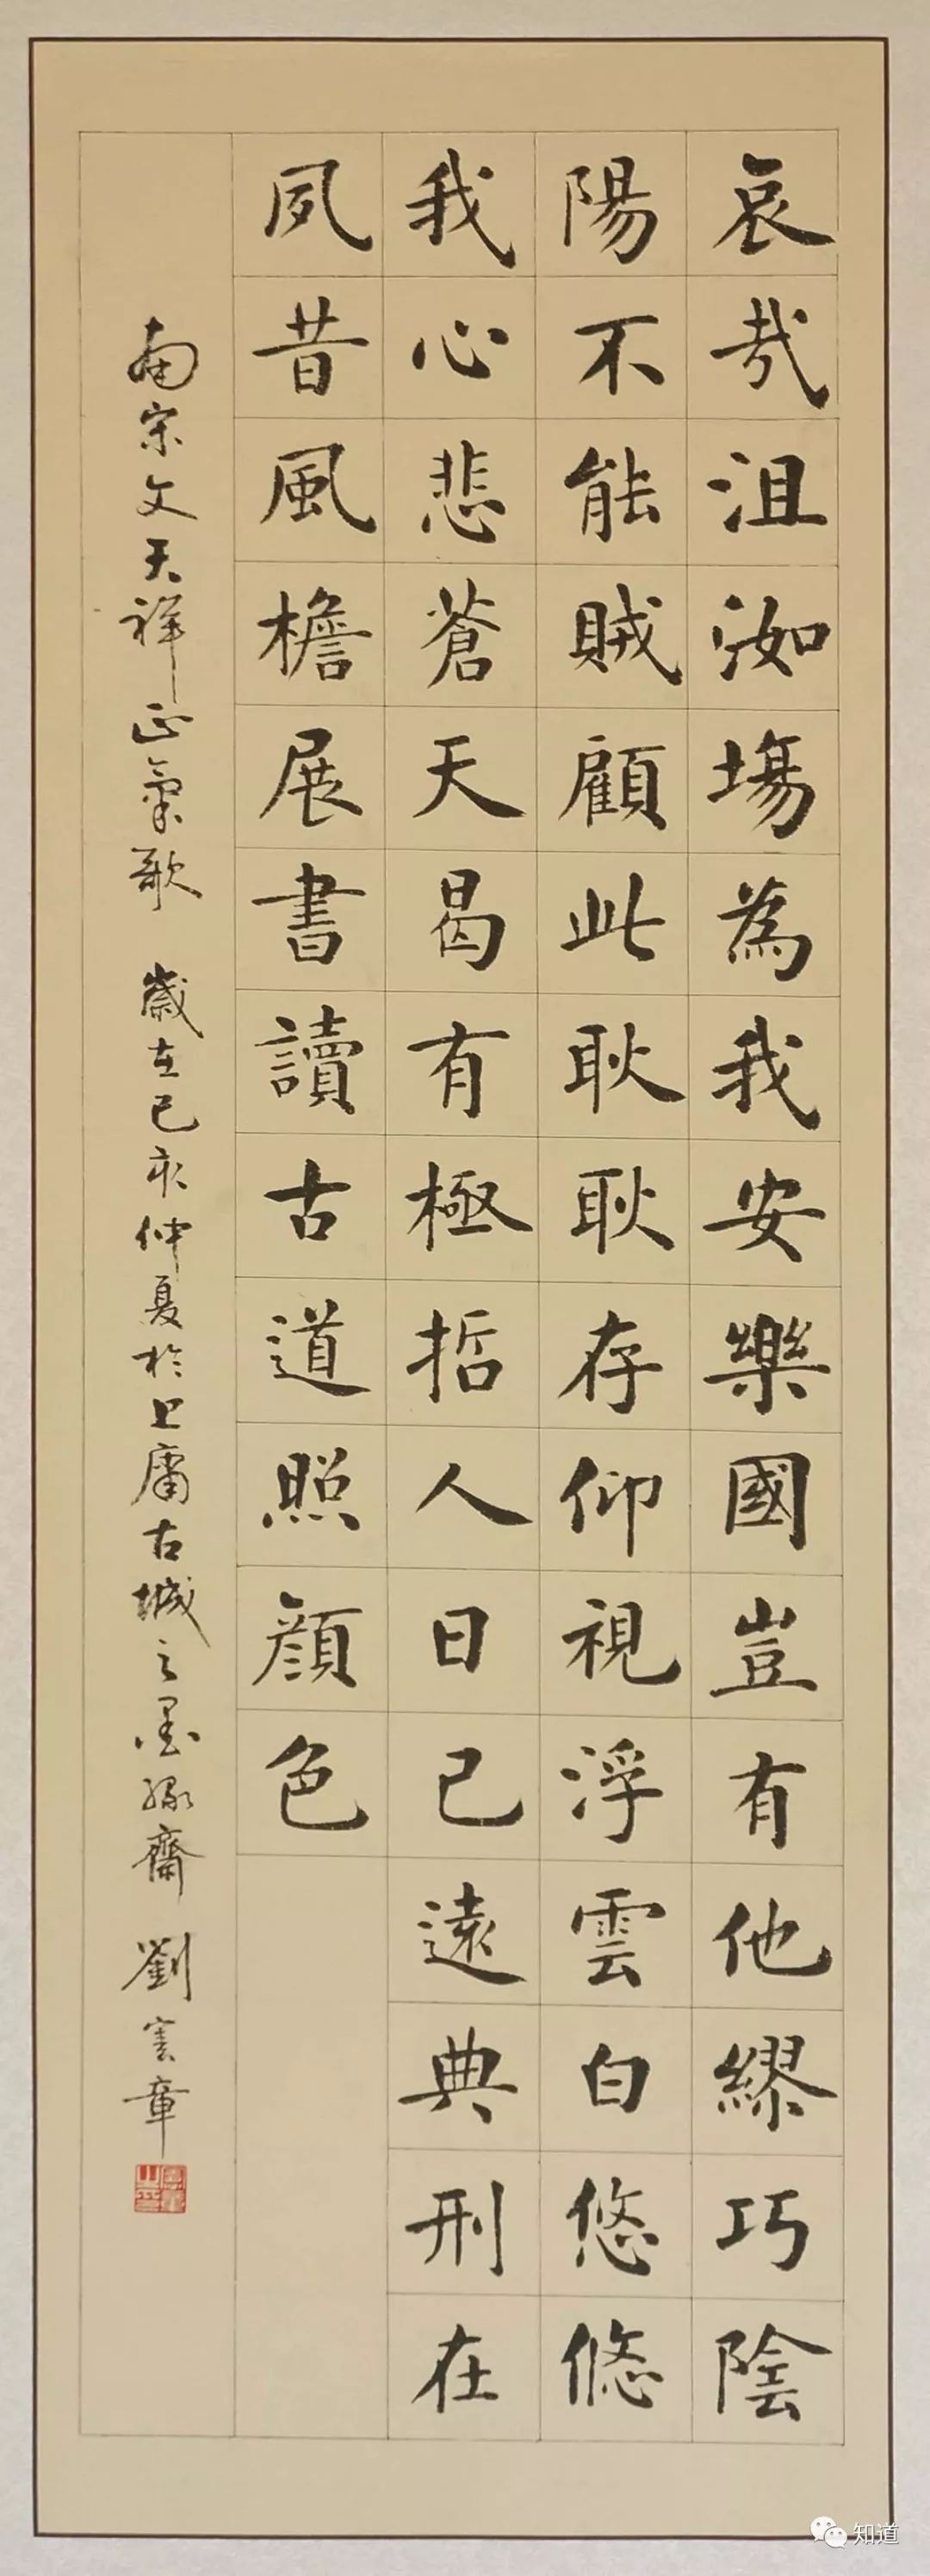 哀哉沮洳場為我安樂國豈有他繆巧陰
陽不能賊顧此耿耿存仰視浮雲白悠悠
我心悲蒼天曷有極哲人日已遠典刑在
夙昔風檐展書讀古道照顔色
南宋文天祥正氣歌 歲在己亥仲夏於上庸古城之墨緣齋 劉章
知道